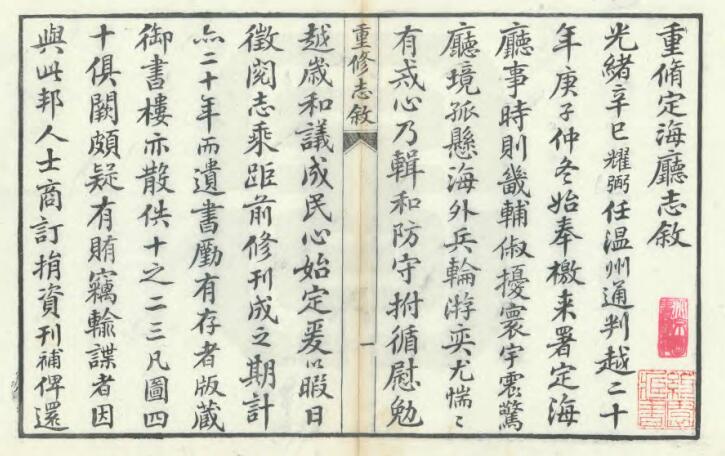 重脩定海廳志敘
光緒辛巳耀弼任溫州通判越二十
年庚子仲冬始奉檄来署定海
廳事時則畿輔俶擾寰宇震驚
廳境孤懸海外兵輪游奕尤惴〻
有戒心乃輯和防守拊循慰勉
重修志敘
一
越歲和議成民心始定爰以暇日
徵閱志乘距前修刊成之期計
二十年而遺書尠有存者版藏
御書樓亦散佚十之二三凡圖四
十俱闕頗疑有賄竊輸諜者因
與此邦人士商訂捐資刊補俾還